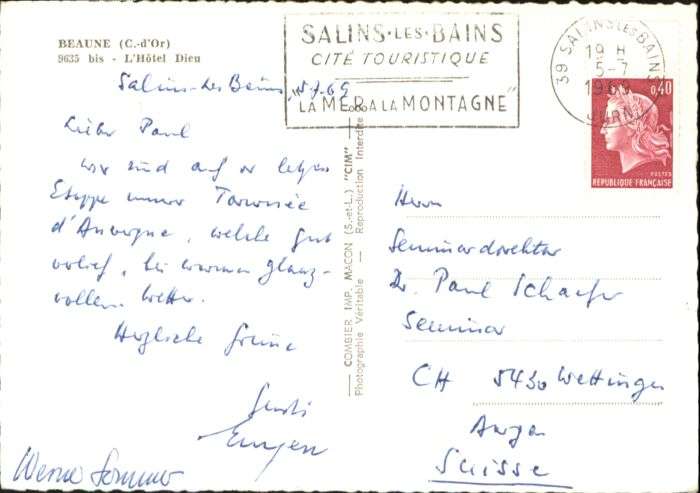 BEAUNE (C.-d'Or)
9635 bis - L'Hôtel Dieu
SALINS-LES-BAINS
CITÉ TOURISTIQUE
"LA MER A LA MONTAGNE"
39 SALINS LES BAINS
19 H
5-7
1969
JURA
0,40
POSTES
REPUBLIQUE FRANÇAISE
Salins-les Bains, 5.7.69
Lieber Paul
wir sind auf der letzten
Etappe unserer Tournée
d'Auvergne, welche gut
verlief, bei warmem glanz-
vollem Wetter.
Herzliche Grüsse
Eugen
Werner Sommer
COMBIER IMP. MACON (S.-et-L.) "CIM"
Photographie Véritable - Reproduction Interdite
Herrn
Seminardirektor
Dr. Paul Schaefer
Seminar
CH 5430 Wettingen
Aargau
Suisse